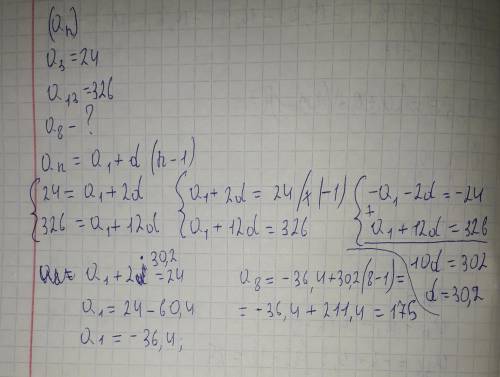 (aₙ)
a₃ = 24
a₁₃ = 326
a₈ - ?
aₙ = a₁ + d (n-1)
{ 24 = a₁ + 2d
326 = a₁ + 12d
{ a₁ + 2d = 24 /x |-1)
a₁ + 12d = 326
{ -a₁ - 2d = -24
+
a₁ + 12d = 326
10d = 302
d = 30,2
a₁ + 2d = 24
30,2
a₁ = 24 - 60,4
a₁ = -36,4;
a₈ = -36,4 + 302 (8-1) =
= -36,4 + 211,4 = 175